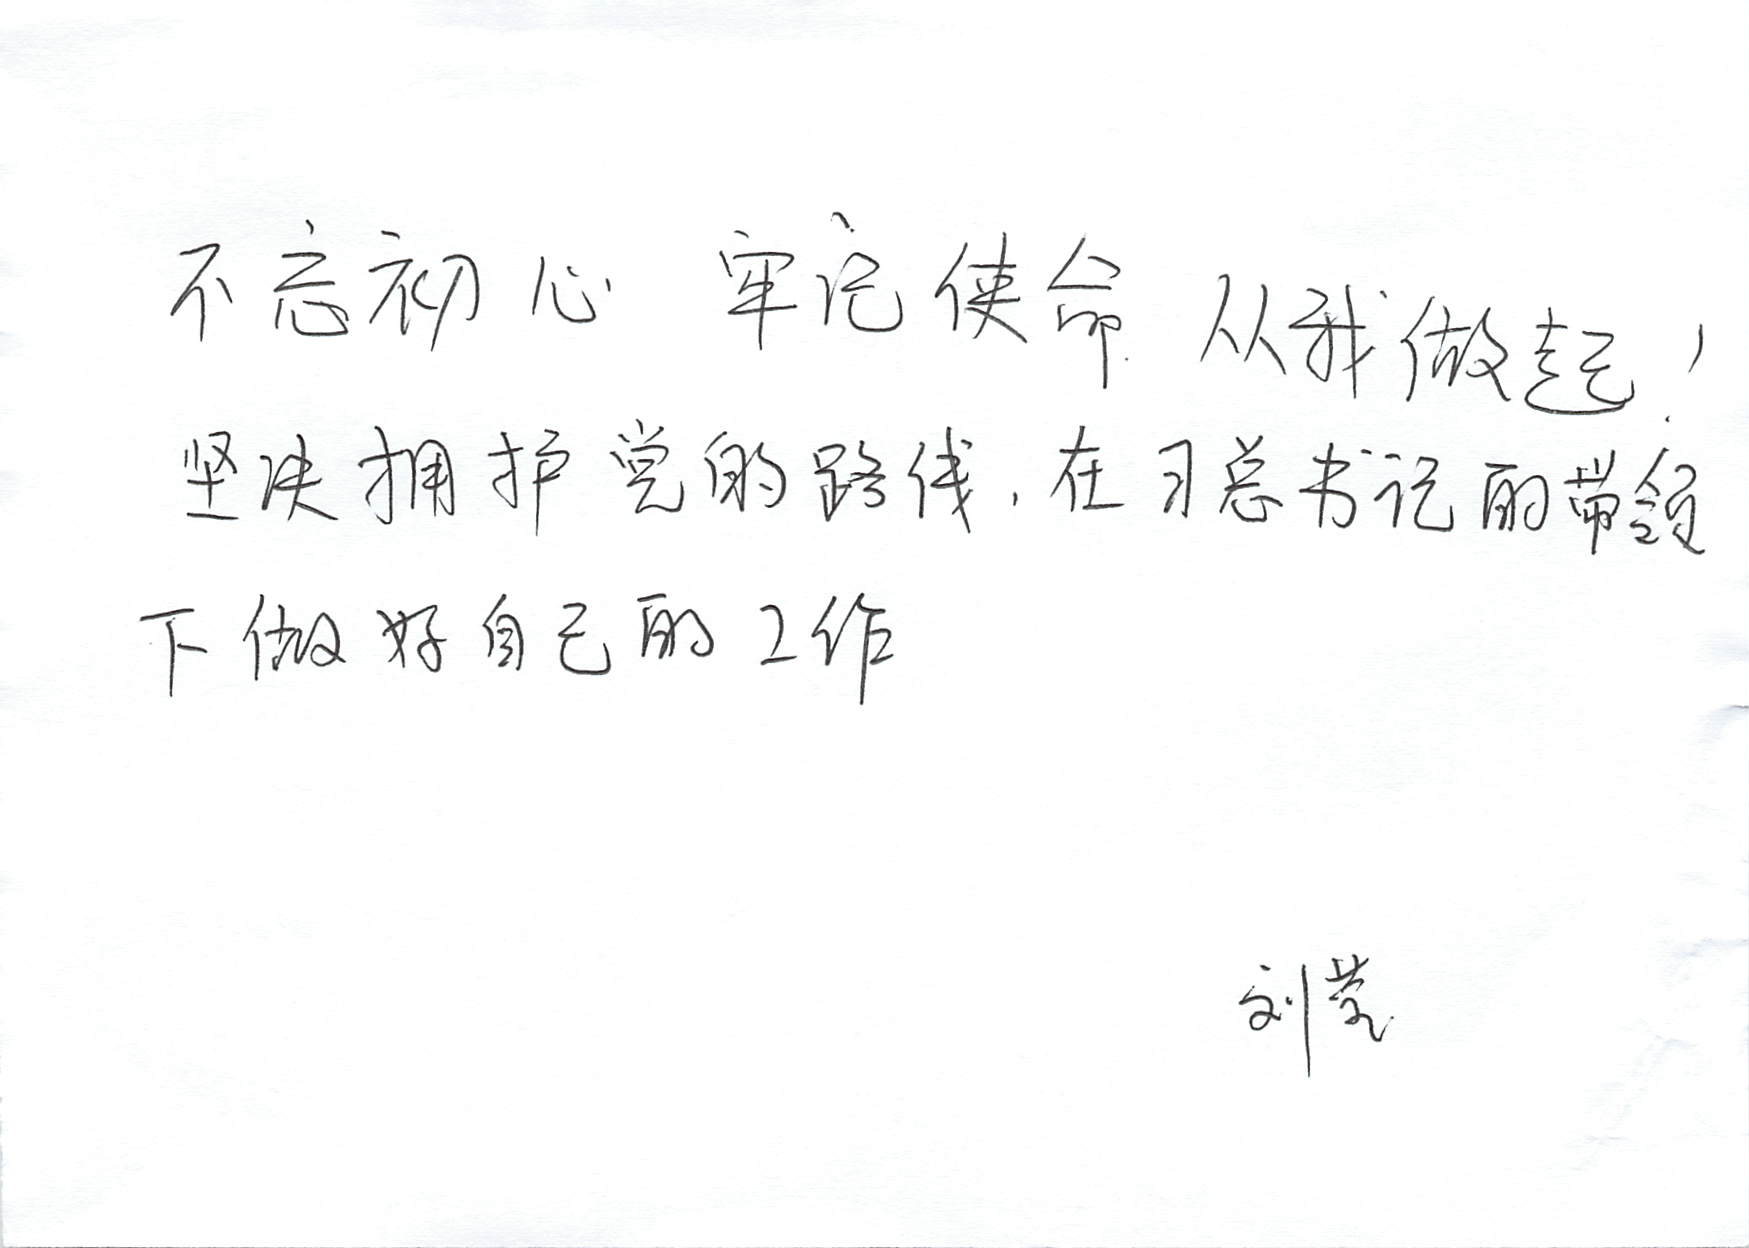 不忘初心 牢记使命 从我做起！
坚决拥护党的路线，在习总书记的带领
下做好自己的工作
刘莹